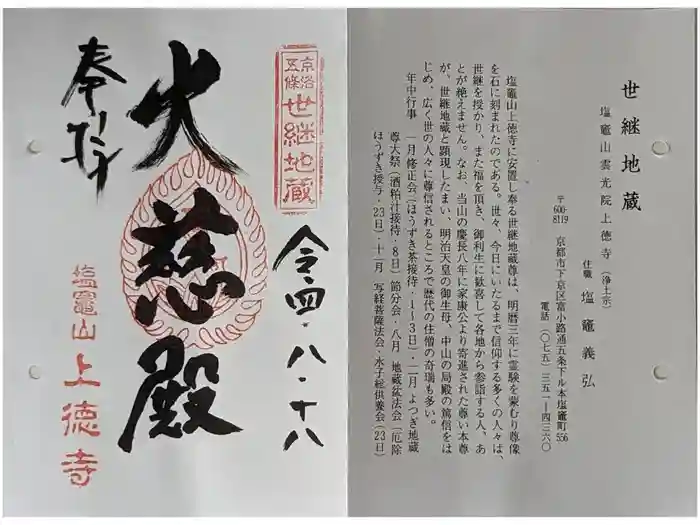 京洛
五條
世継地蔵
令四・八・十八
大慈殿
奉拝
塩竈山
上徳寺
世継地蔵
塩竈山雲光院上徳寺(浄土宗)
住職 塩竈義弘
〒600-8119 京都市下京区富小路通五条下ル本塩竈町556
電話(〇七五)三五一―四三六〇
塩竈山上徳寺に安置し奉る世継地蔵尊は、明暦三年に霊験を蒙むり尊像
を石に刻まれたのである。世々、今日にいたるまで信仰する多くの人々は、
世継を授かり、また福を頂き、御利生に歓喜して各地から参詣する人、あ
とが絶えません。なお、当山の慶長八年に家康公より寄進された尊い本尊
が、世継地蔵と顕現したまい、明治天皇の御生母、中山の局殿の篤信をは
じめ、広く世の人々に尊信されるところで歴代の住僧の奇瑞も多い。
年中行事 一月修正会(ほうずき茶接待・1〜3日)・二月よつぎ地蔵
尊大祭(酒粕汁接待・8日)節分会・八月 地蔵盆法会(厄除
ほうずき授与・23日)・十二月 写経菩薩法会・水子総供養会(23日)